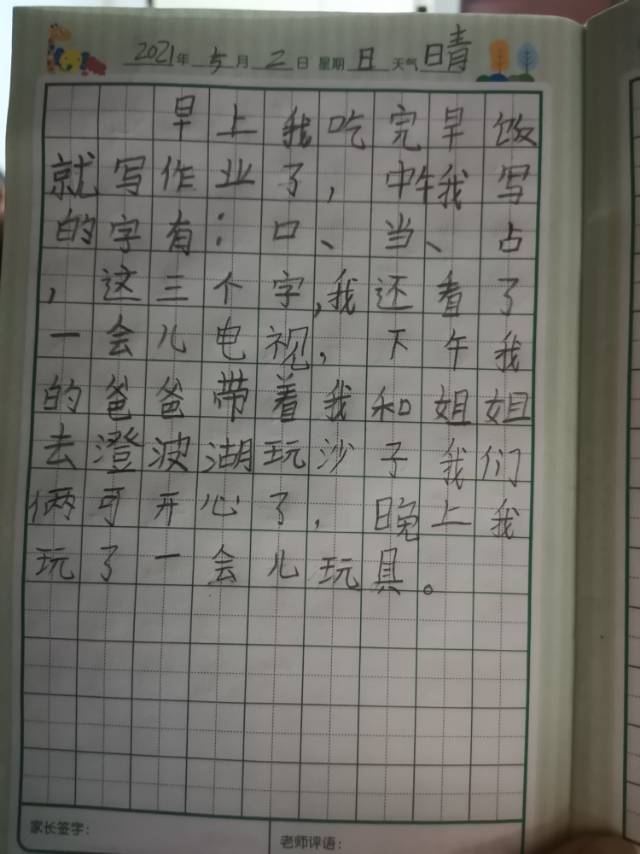 2021年 5月 2日 星期 日 天气 晴
早上我吃完早饭
就写作业了，中午我写
的字有：口、当、占
，这三个字,我还看了
一会儿电视，下午我
的爸爸带着我和姐姐
去澄波湖玩沙子我们
俩可开心了，晚上我
玩了一会儿玩具。
家长签字：
老师评语：